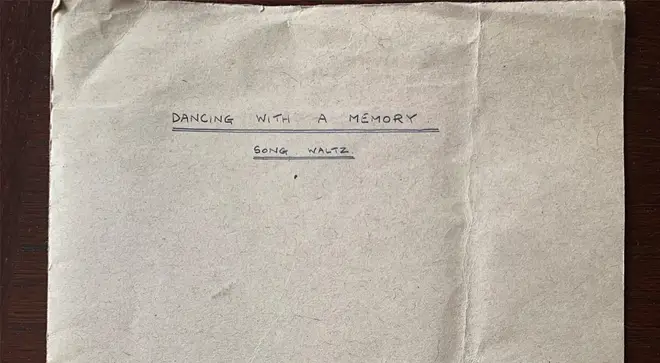 DANCING WITH A MEMORY
SONG WALTZ.